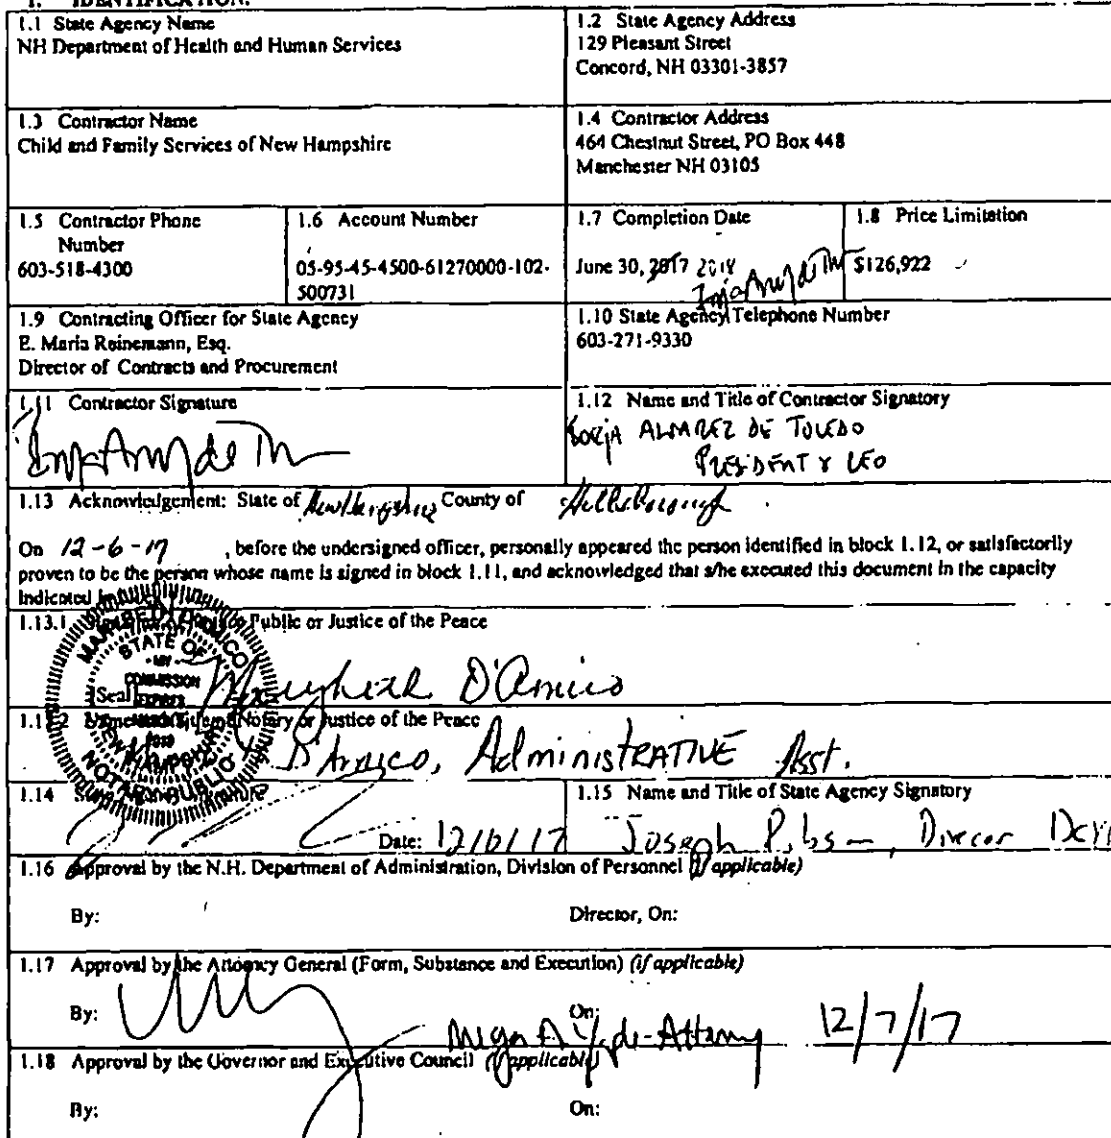 1. IDENTIFICATION.
1.1 State Agency Name
NH Department of Health and Human Services
1.2 State Agency Address
129 Pleasant Street
Concord, NH 03301-3857
1.3 Contractor Name
Child and Family Services of New Hampshire
1.4 Contractor Address
464 Chestnut Street, PO Box 448
Manchester NH 03105
1.5 Contractor Phone
Number
603-518-4300
1.6 Account Number
05-95-45-4500-61270000-102-
500731
1.7 Completion Date
June 30, 2017 2018
1.8 Price Limitation
$126,922
1.9 Contracting Officer for State Agency
E. Maria Reinemann, Esq.
Director of Contracts and Procurement
1.10 State Agency Telephone Number
603-271-9330
1.11 Contractor Signature
1.12 Name and Title of Contractor Signatory
Borja ALVAREZ DE TOLEDO
PRESIDENT & CEO
1.13 Acknowledgement: State of New Hampshire County of Hillsborough
On 12-6-17, before the undersigned officer, personally appeared the person identified in block 1.12, or satisfactorily
proven to be the person whose name is signed in block 1.11, and acknowledged that s/he executed this document in the capacity
indicated
1.13.1 Public or Justice of the Peace
STATE OF
MY
COMMISSION
EXPIRES
[Seal]
NOTARY PUBLIC
D'Amico
1.13.2 Name and Title of Notary or Justice of the Peace
D'Amico, Administrative Asst.
1.14
Date: 12/6/17
1.15 Name and Title of State Agency Signatory
Joseph Director DCYF
1.16 Approval by the N.H. Department of Administration, Division of Personnel (if applicable)
By:
Director, On:
1.17 Approval by the Attorney General (Form, Substance and Execution) (if applicable)
By:
On: 12/7/17
1.18 Approval by the Governor and Executive Council (if applicable)
By:
On: